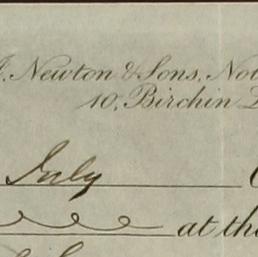 Newton & Sons, Not
10, Birchin L
July
at the